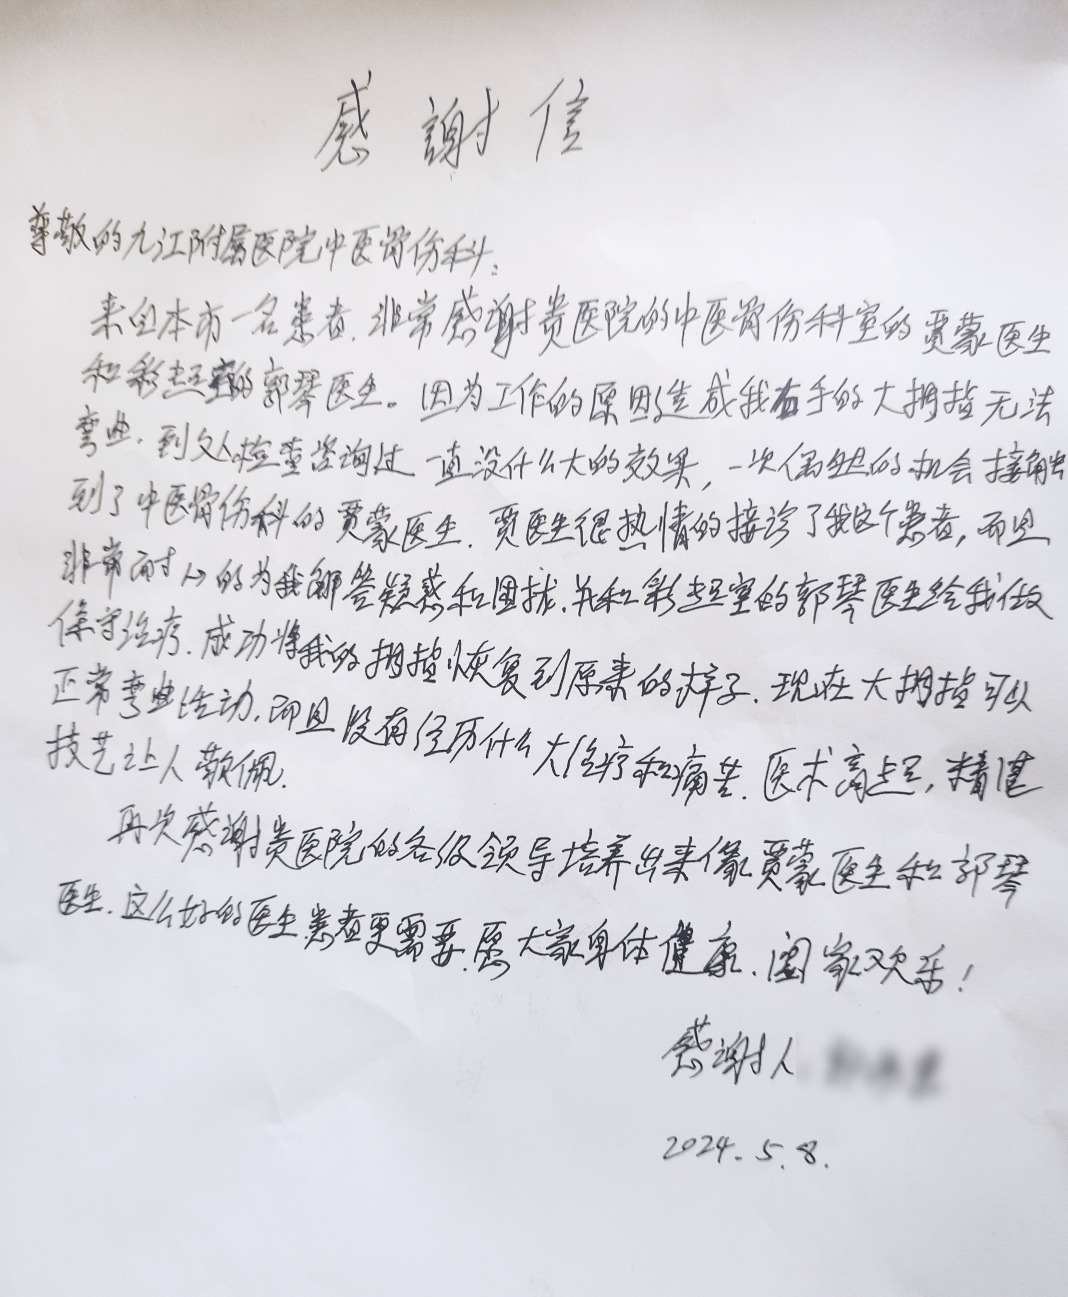 感謝信
尊敬的九江附属医院中医骨伤科:
来自本市一名患者,非常感谢贵医院的中医骨伤科室的贾蒙医生
和彩超室的郭琴医生。因为工作的原因造成我右手的大拇指无法
弯曲,到处检查咨询过一直没什么大的效果,一次偶然的机会接触
到了中医骨伤科的贾蒙医生,贾医生很热情的接诊了我这个患者,而且
非常耐心的为我解答疑惑和困扰,并和彩超室的郭琴医生给我做
保守治疗,成功将我的拇指恢复到原来的样子,现在大拇指可以
正常弯曲活动,而且没有经历什么大治疗和痛苦,医术高超,精湛
技艺让人敬佩.
再次感谢贵医院的各级领导培养出来像贾蒙医生和郭琴
医生,这么好的医生患者更需要,愿大家身体健康,阖家欢乐!
感谢人
2024.5.8.